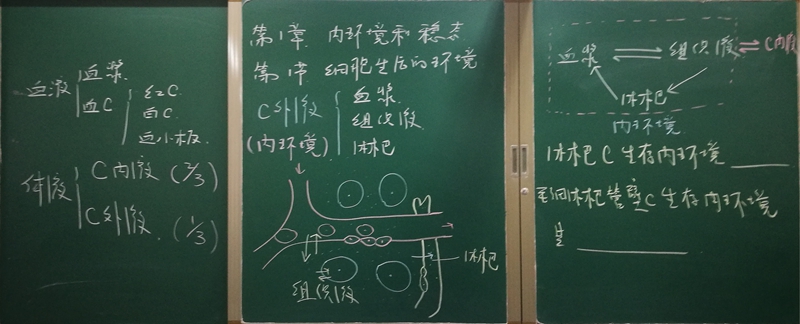 血液 血浆
血C 红C
白C
血小板
体液 C内液 (2/3)
C外液 (1/3)
第1章 内环境和稳态
第1节 细胞生活的环境
C外液 血浆
组织液
(内环境) 淋巴
淋巴
组织液
血浆 ⇌ 组织液 ⇌ C内液
淋巴
内环境
淋巴C生存内环境____
毛细淋巴管壁C生存内环境
是________